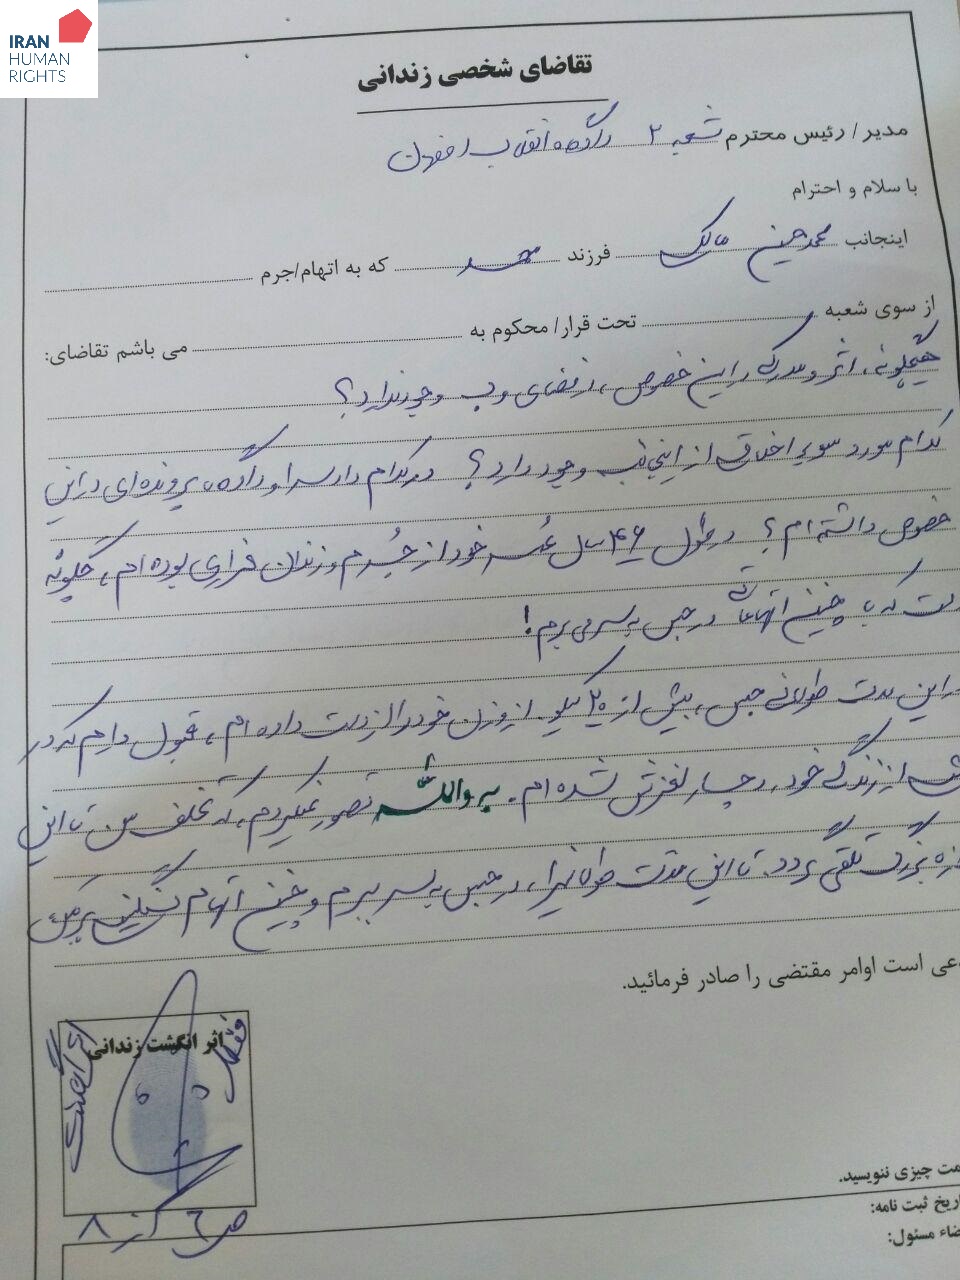 IRAN
HUMAN
RIGHTS
تقاضای شخصی زندانی
مدیر / رئیس محترم شعبه ۲ دادگاه انقلاب اصفهان
با سلام و احترام
اینجانب محمدحسین مالک فرزند محمد که به اتهام/جرم
از سوی شعبه تحت قرار/ محکوم به می باشم تقاضای:
هیچگونه، اثر و مدرکی در این خصوص، در فضای وب وجود ندارد؟
کدام مورد سوء اخلاق از اینجانب وجود دارد؟ در کدام دادسرا و دادگاه، پرونده‌ای در این
خصوص داشته ام؟ در طول ۴۶ سال عُمر خود از جُرم و زندان فراری بوده ام، چگونه
است که با چنین اتهاماتی در حبس به سر می برم!
در این مدت طولانی حبس، بیش از ۲۰ کیلو از وزن خود را از دست داده ام، قبول دارم که در
از زندگی خود، دچار لغزش شده ام. تصور نمیکردم، که تخلف من تا این
بزرگ تلقی گردد. تا این مدت طولانی را، در حبس به سر ببرم و چنین اتهام سنگینی
دعی است اوامر مقتضی را صادر فرمائید.
اثر انگشت زندانی
اثر انگشت
ص ۶ از ۸
مت چیزی ننویسید.
اریخ ثبت نامه:
ضاء مسئول: